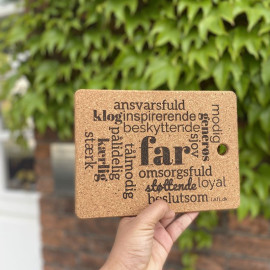 ansvarsfuld
klog inspirerende
beskyttende
modig
generøs
sjov
stærk
kærlig
pålidelig
tålmodig
far
omsorgsfuld
støttende
loyal
beslutsom